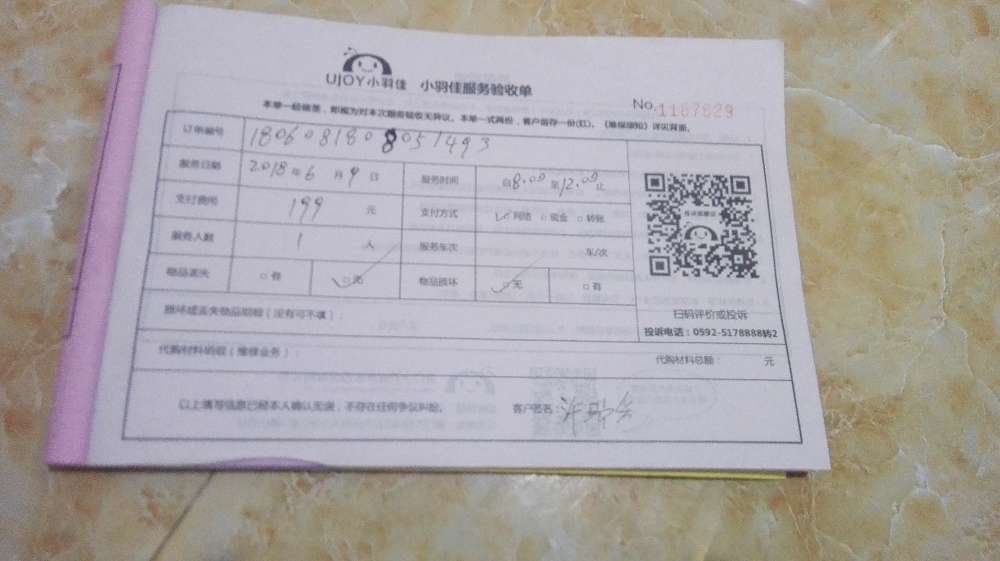 UJOY小羽佳 小羽佳服务验收单
No. 1167829
本单一经签签，即视为对本次服务验收无异议。本单一式两份，客户留存一份(红)。《维保须知》详见背面。
订单编号 1806081808051493
服务日期 2018年6月9日 服务时间 自8:00至12:00止
支付费用 199 元 支付方式 ✓网络 □现金 □转账
服务人数 1 人 服务车次 车/次
物品丢失 □有 ✓□无 物品损坏 ✓□无 □有
扫码评价或投诉
损坏或丢失物品明细（没有可不填）：
投诉电话：0592-5178888转2
代购材料明细（维修业务）： 代购材料总额： 元
以上填写信息已经本人确认无误，不存在任何争议纠纷。 客户签名：